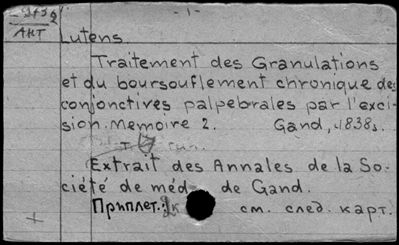 - 1 -
АНТ
Lutens
Traitement des Granulations
et du boursouflement chronique des
conjonctives palpebrales par l'exci-
sion. Memoire 2. Gand, 1838.
Extrait des Annales de la So-
ciété de méd. de Gand.
Приплет.: см. след. карт.
+